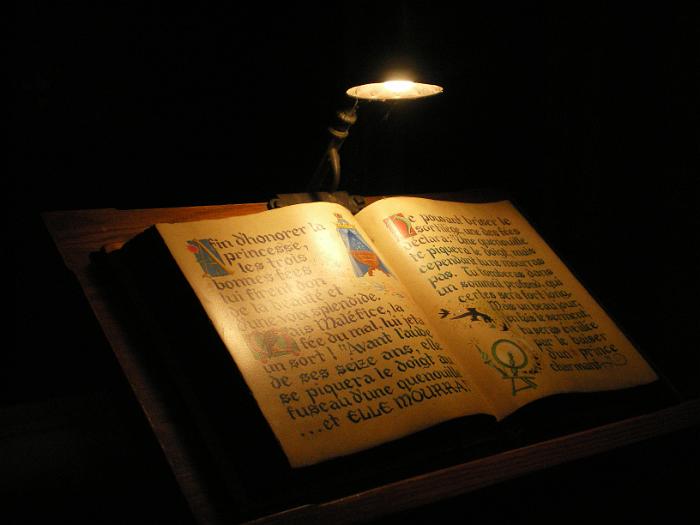 Afin d'honorer la
princesse,
les trois
bonnes fées
lui firent don
de la beauté et
d'une voix splendide.
Mais Maléfice, la
fée du mal, lui jeta
un sort ! "Avant l'aube
de ses seize ans, elle
se piquera le doigt au
fuseau d'une quenouille
...et ELLE MOURRA!
Ne pouvant briser le
sortilège, une des fées
déclara: "Une quenouille
te piquera le doigt, mais
cependant tu ne mourras
pas. Tu tomberas dans
un sommeil profond, qui
certes sera fort long.
Mais un beau jour,
tu seras éveillée
par le baiser
d'un prince
charmant."